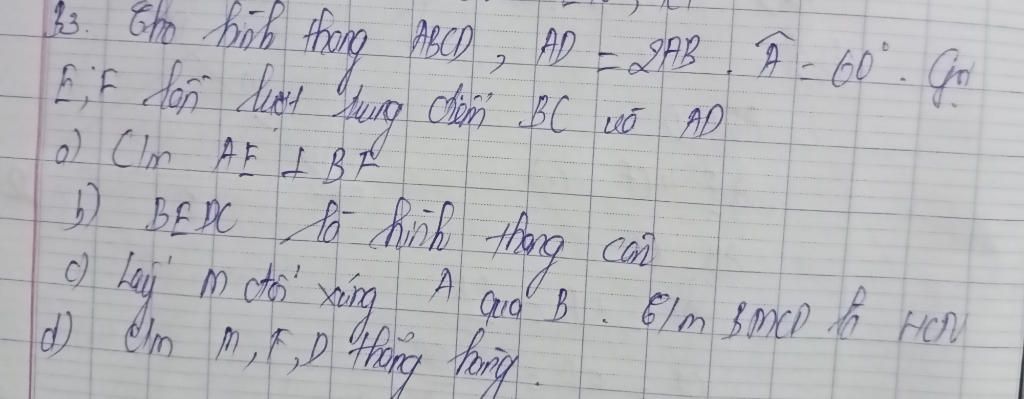 33. Cho hình thang ABCD, AD = 2AB. Â = 60°. Gọi
E, F lần lượt trung điểm BC và AD
a) C/m AE ⊥ BF
b) BEDC là hình thang cân
c) Lấy M đối xứng A qua B. C/m BMCD là HCN
d) C/m M, F, D thẳng hàng.